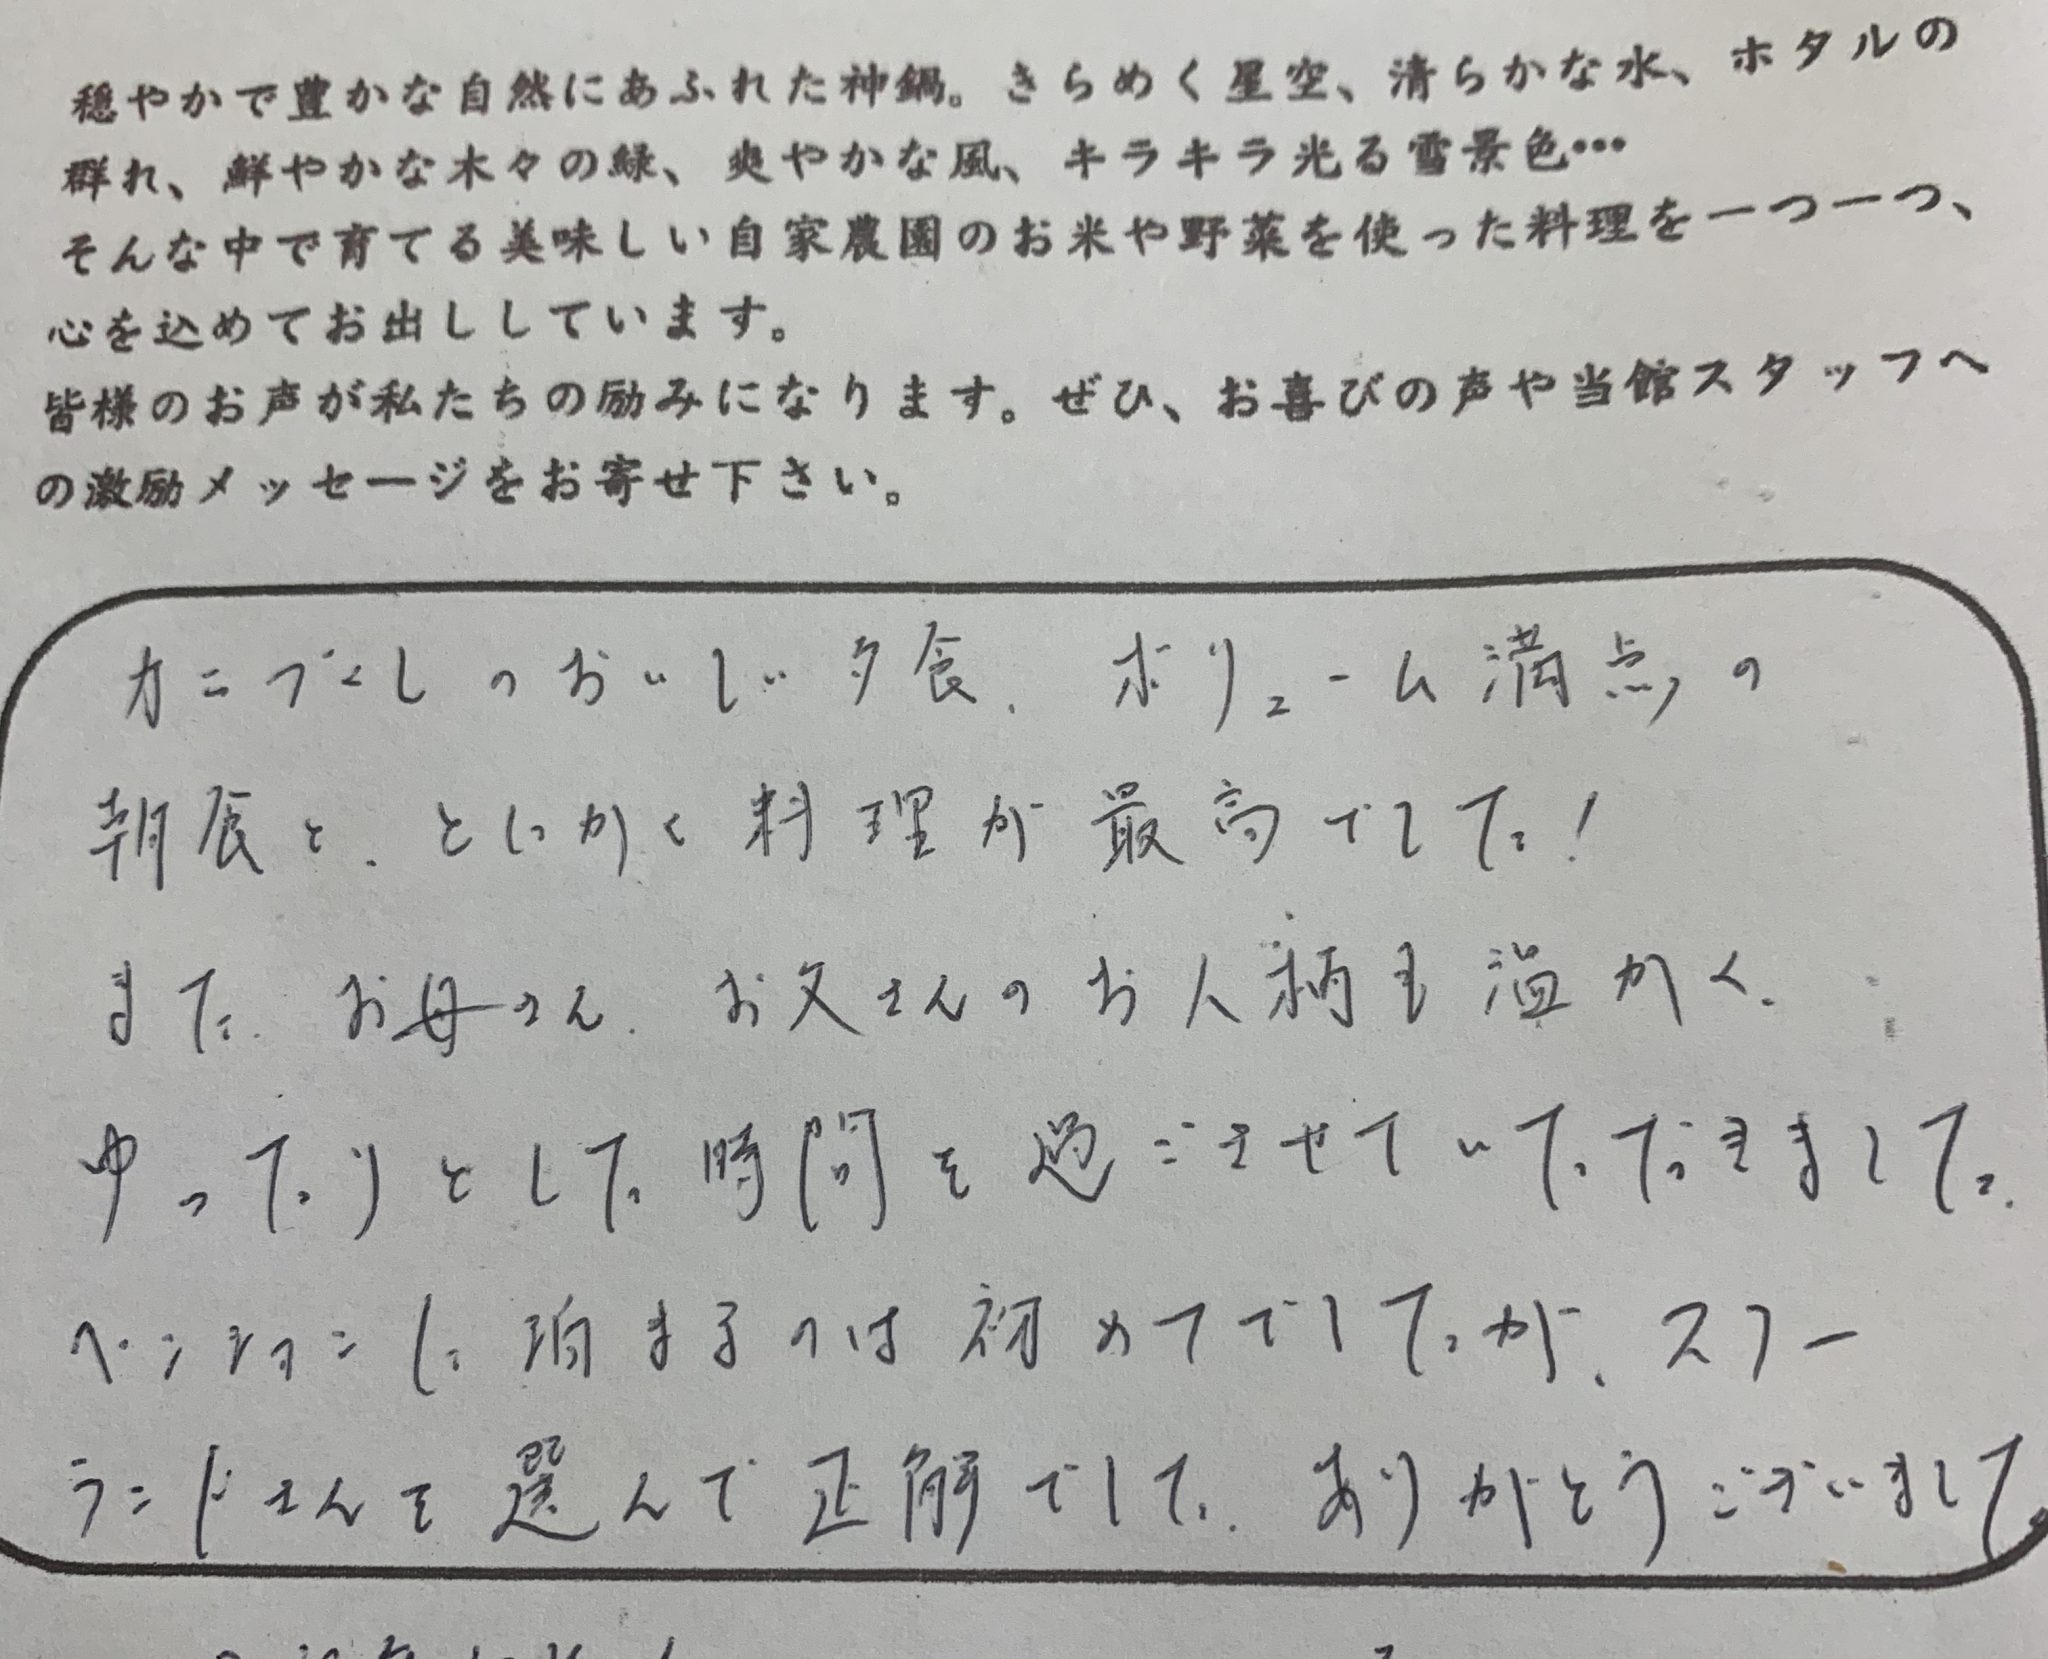 穏やかで豊かな自然にあふれた神鍋。きらめく星空、清らかな水、ホタルの
群れ、鮮やかな木々の緑、爽やかな風、キラキラ光る雪景色…
そんな中で育てる美味しい自家農園のお米や野菜を使った料理を一つ一つ、
心を込めてお出ししています。
皆様のお声が私たちの励みになります。ぜひ、お喜びの声や当館スタッフへ
の激励メッセージをお寄せ下さい。
カニづくしのおいしい夕食、ボリューム満点の
朝食と、とにかく料理が最高でした!
また、お母さん、お父さんのお人柄も温かく、
ゆったりとした時間を過ごさせていただきました。
ペンションに泊まるのは初めてでしたが、スノー
ランドさんを選んで正解でした。ありがとうございました